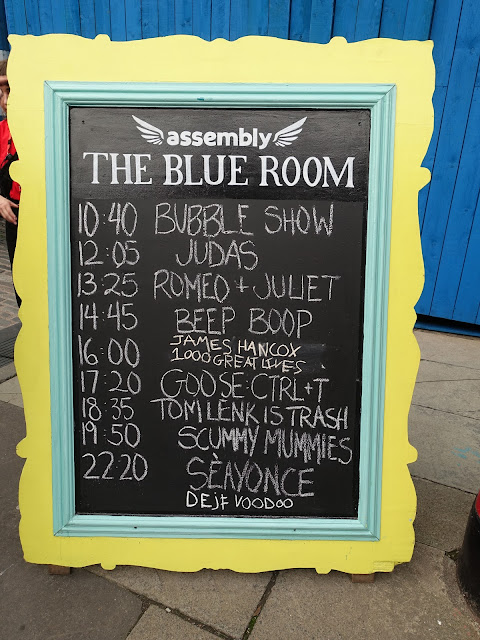 assembly
THE BLUE ROOM
10:40 BUBBLE SHOW
12:05 JUDAS
13:25 ROMEO + JULIET
14:45 BEEP BOOP
16:00 JAMES HANCOX
1000 GREAT LIVES
17:20 GOOSE: CTRL+T
18:35 TOM LENK IS TRASH
19:50 SCUMMY MUMMIES
22:20 SÈAYONCE
DEJF VOODOO